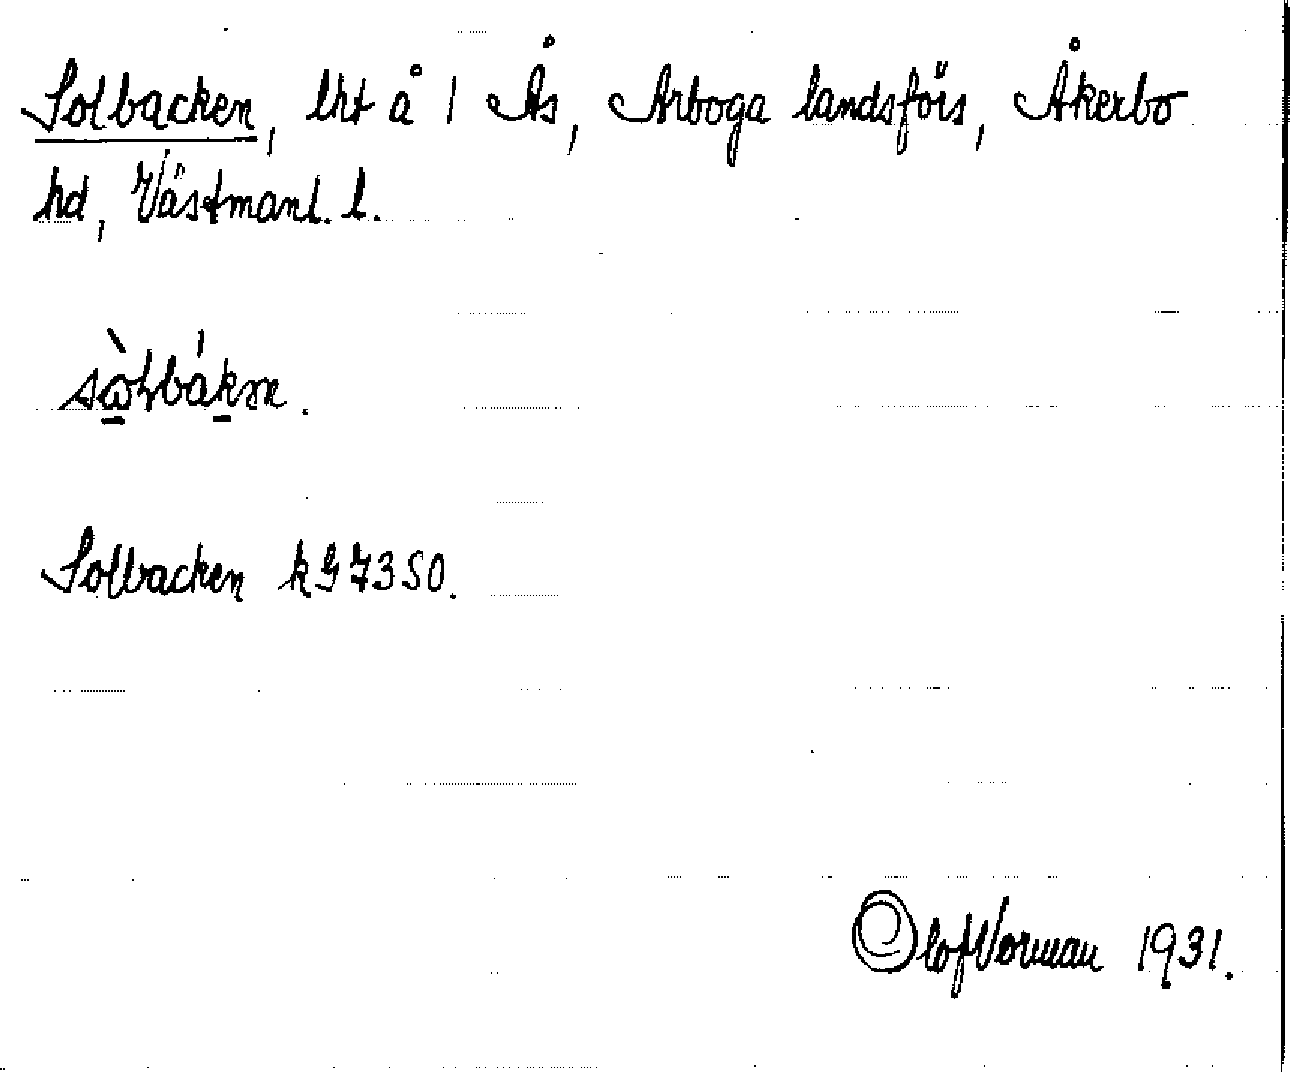 Solbacken, lht å 1 Ås, Arboga landsförs, Åkerbo
hd, Västmanl. l.
Solbacken kG7350.
Olof Vorman 1931.